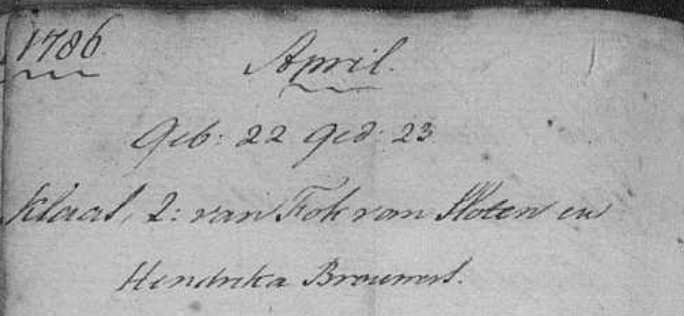 1786
April.
Geb: 22 ged: 23
Klaas, Z: van Fok van Sloten en
Hendrika Brouwers.